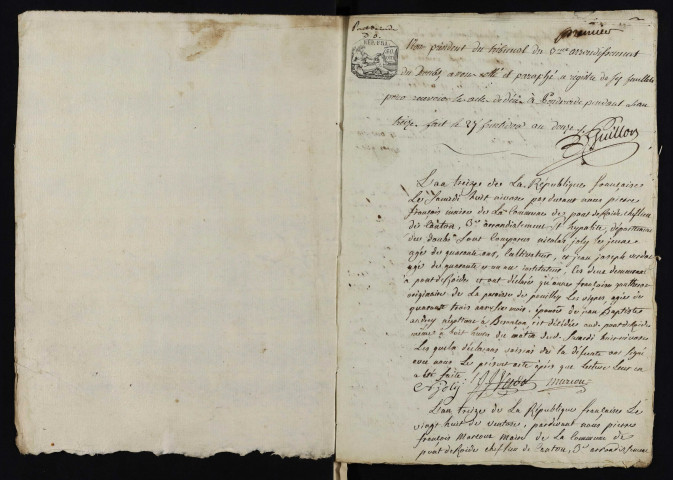 premier
Nous président du tribunal du 3me arrondissement
du Doubs, avons cotté et paraphé registre de feuillets
pour recevoir les actes de décès à Pontderoide pendant l'an
treize. fait le 27 fructidor an douze
Guillon
L'an treize de La République française
Le Samedi huit nivose pardevant nous pierre
françois maire de La Commune de pont de Roide chef lieu
de Canton, 3me arrondissement St hypolite, département
du doubs Sont Comparus nicolas joly le jeune
agé de quarante ans, Cultivateur, et jean joseph
agé de quarante et un an instituteur, les deux demeurans
à pont de Roide et ont déclaré qu'anne françoise
originaire de La paroisse de agée de
quarante trois ans six mois, épouse de jean Baptiste
à est décédée aud. pont de Roide
même à huit heures du matin dud. Samedi huit nivose
Les quels déclarans de la défunte ont signé
avec nous Le présent acte après que lecture leur en
a été faite
N Joly
L'an treize de La République française Le
vingt huit de ventose, pardevant nous pierre
françois maire de La Commune de
pont de Roide chef lieu de Canton, 3e arrondissement